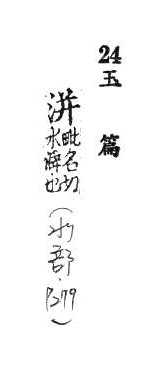 24玉篇
洴毗名切
水𤃩也
(水部·P.279)